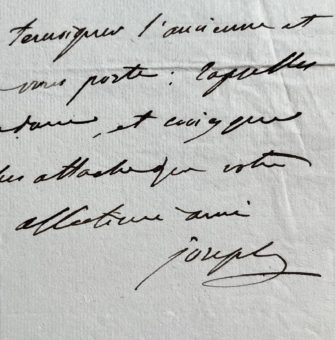 temoigner l'ancienne et
vous porte: rappelles
dame, et croiy que
plus attaché que votre
affectionné ami
joseph